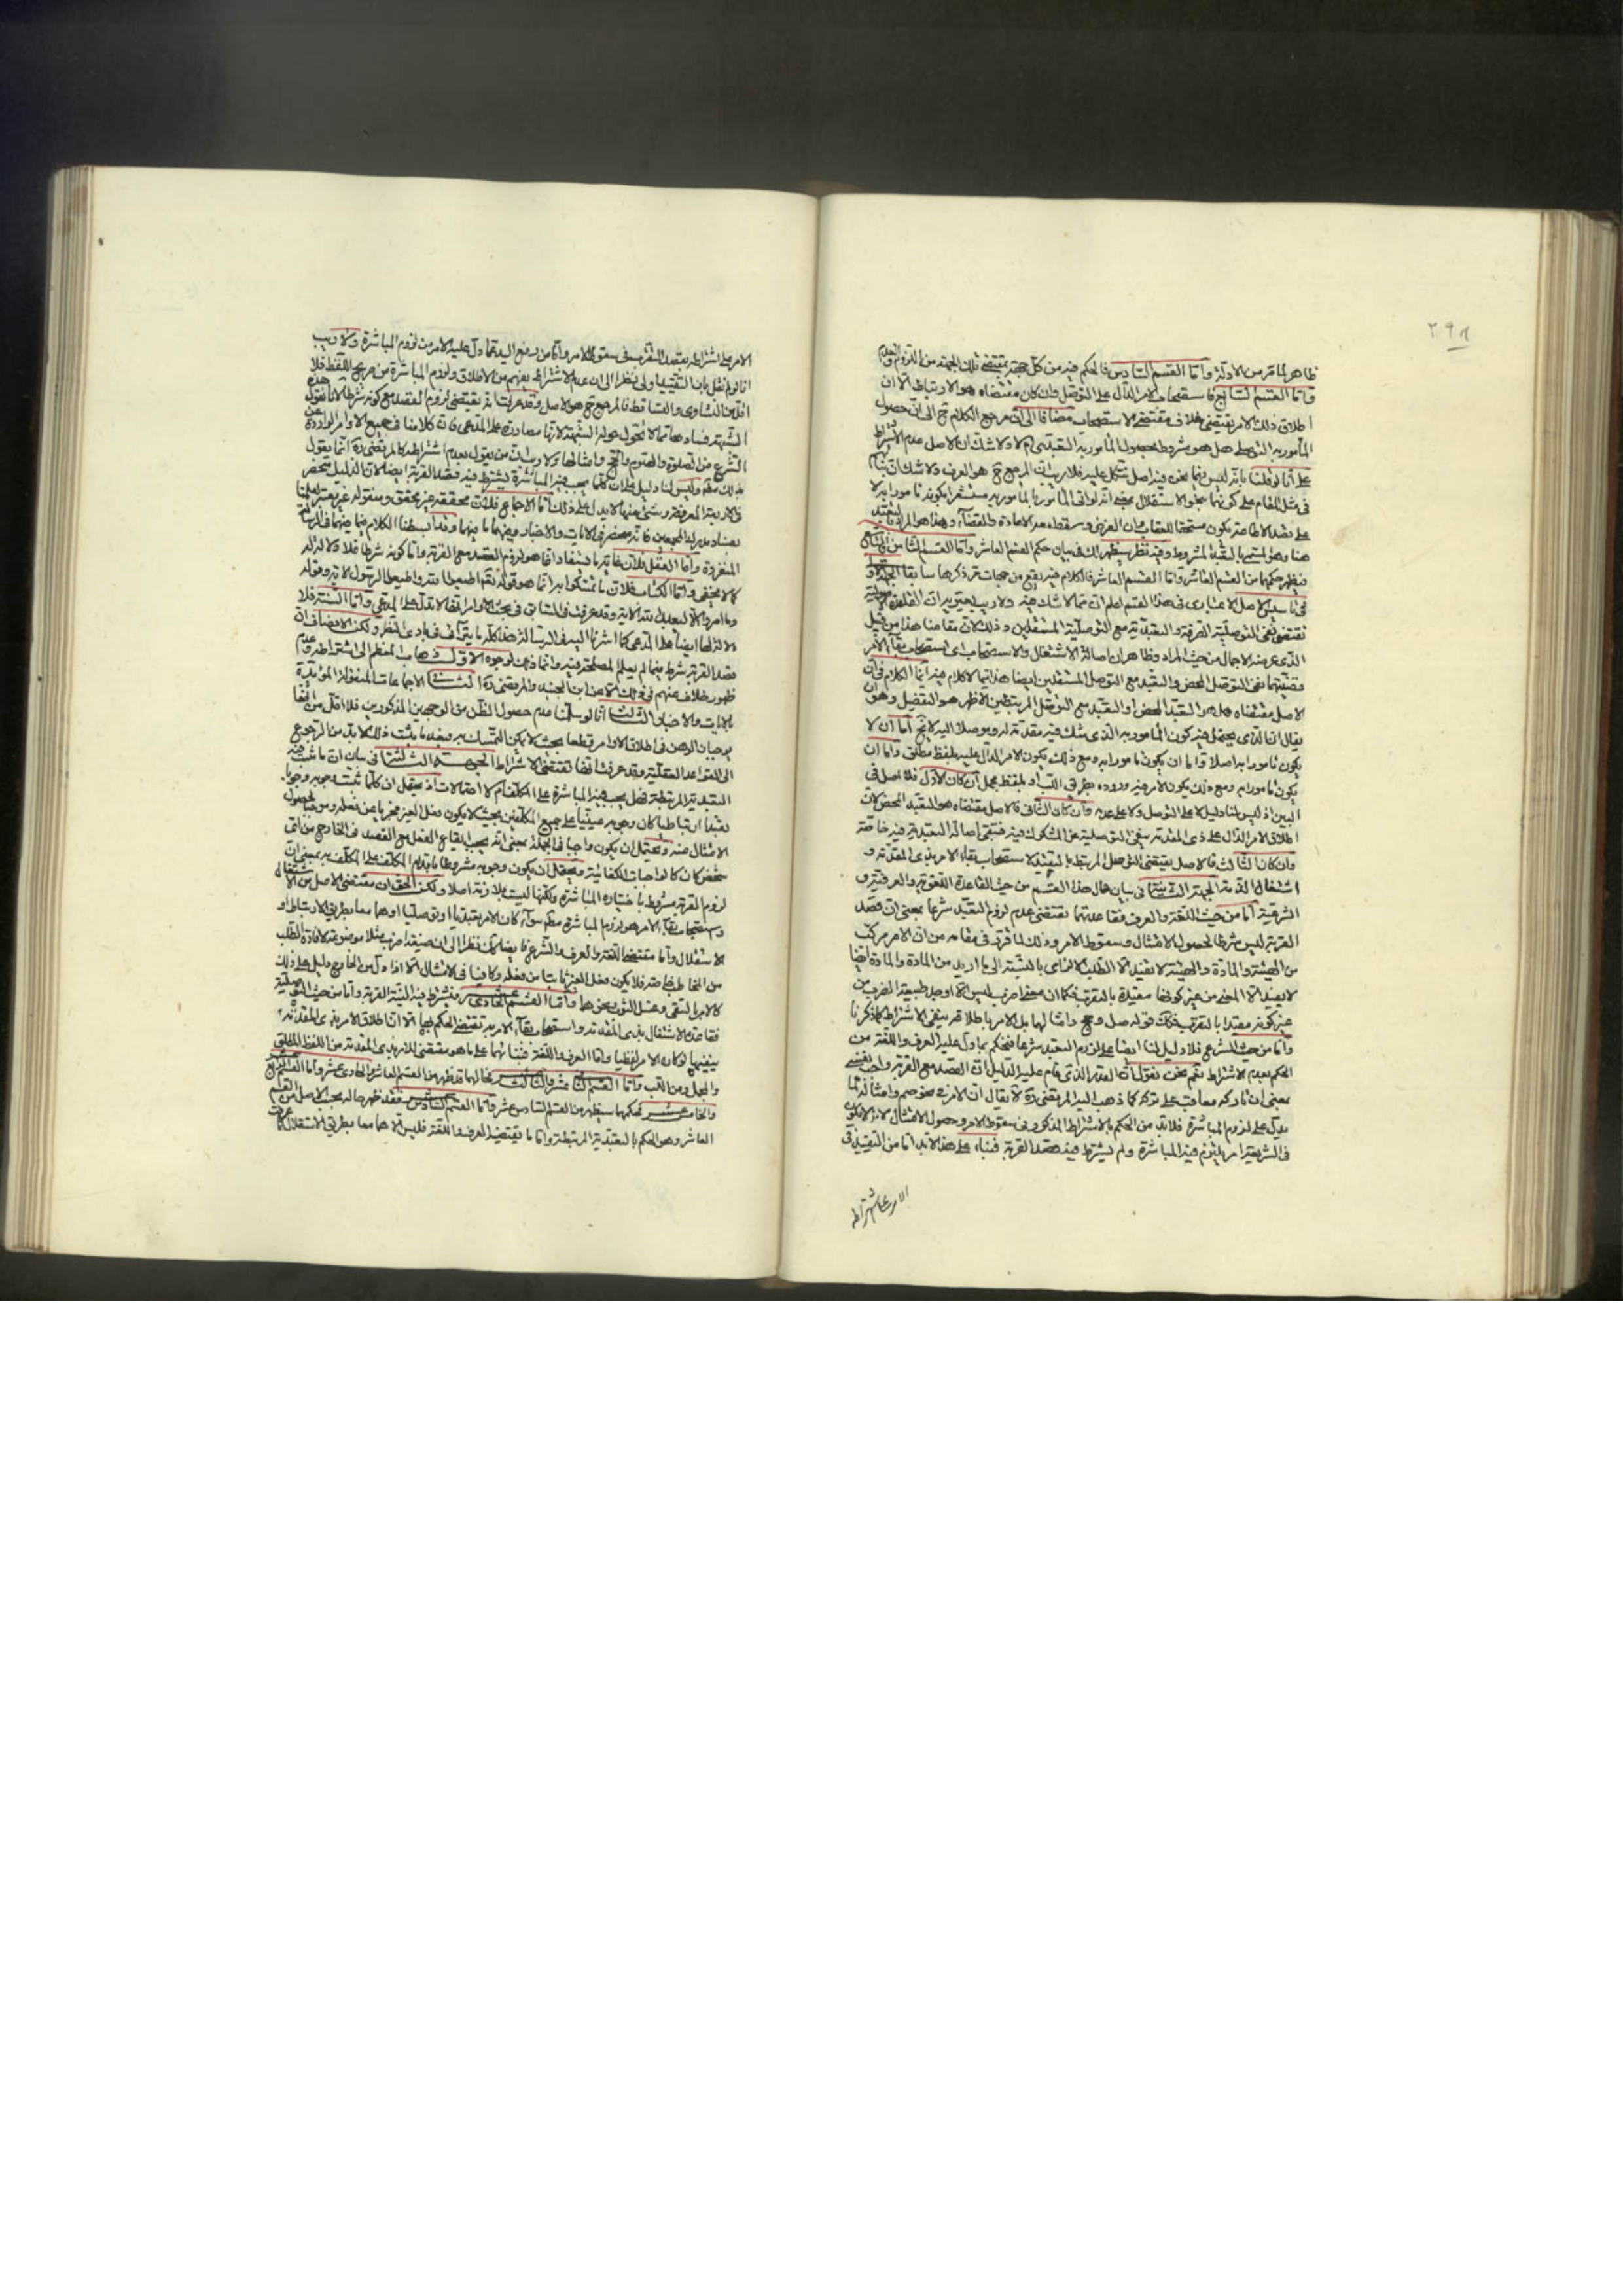 ٢٩٨
ظاهر لما مر من الادلة واما القسم السادس فالحكم فيه من كل جهة بمقتضى تلك الجهة من اللزوم والعدم
واما القسم السابع فاستصحاب الامر الدال على التوصل وان كان مقتضاه هو الارتباط الا ان
اطلاق ذلك الامر يقتضى خلاف مقتضى الاستصحاب مضافا الى ان مرجع الكلام ح الى ان حصول
المأمور به التوصلى هل هو مشروط بحصول المأمور به التعبدى ام لا ولا شك ان الاصل عدم الاشتراط
على انا لو قلنا بانه ليس فيما نحن فيه اصل نتكل عليه فلا ريب ان المرجع ح هو العرف ولا شك ان بناءهم
فى مثل المقام على كونهما بنحو الاستقلال بمعنى انه لو اتى المأمور بالمأمور به مستشعرا بكونه مأمورا به لا
على قصد الاطاعة يكون مستحقا للعقاب بان الغرض وسقط معه الاعادة والقضاء وهذا هو المراد بالتعبد
هنا وهو المسمى بالتعبد المشروط وفيه نظر سيظهر لك فى بيان حكم القسم العاشر واما القسم الثامن والتاسع
فيظهر حكمهما من القسم العاشر واما القسم العاشر فالكلام فيه يقع من جهات مر ذكرها سابقا الجهة الاولى
فى تأسيس الاصل الاعتبارى فى هذا القسم اعلم ان مما لا شك فيه ولا ريب يعتريه ان القاعدة الاولية
تقتضى نفى التوصلية الصرفة والتعبدية مع التوصلية المستقلين وذلك لان مقامنا هذا من قبيل
الذى عرضه الاجمال من حيث المراد وظاهر ان اصالة الاشتغال والاستصحاب اى استصحاب بقاء الامر
قضيتهما نفى التوصل المحض والتعبد مع التوصل المستقلين ايضا هذا مما لا كلام فيه انما الكلام فى ان
الاصل مقتضاه هل هو التعبد المحض او التعبد مع التوصل المرتبطين الاظهر هو التفصيل وهو ان
يقال ان الذى يحتمل فيه كون المأمور به الذى شك فيه مقدمة له ويوصلا اليه لا يخ اما ان لا
يكون مأمورا به اصلا واما ان يكون مأمورا به ومع ذلك يكون الامر الدال عليه بلفظ مطلق واما ان
يكون مأمورا به ومع ذلك يكون الامر فيه وروده بطريق اللب او بلفظ مجمل فان كان الاول فلا اصل فى
البين اذ ليس لنا دليل لا على التوصل ولا على عدمه وان كان الثانى فالاصل مقتضاه هو التعبد المحض لان
اطلاق الامر الدال على ذى المقدمة ينفى التوصلية عن المشكوك فيه فتبقى اصالة التعبدية فيه خاصة
وان كان الثالث فالاصل يقتضى التوصل المرتبط بالتعبد لاستصحاب بقاء الامر بذى المقدمة و
اشتغال الذمة الجهة الثانية فى بيان حال هذا القسم من حيث القاعدة اللغوية والعرفية و
الشرعية اما من حيث اللغة والعرف فقاعدتهما تقتضى عدم لزوم التعبد شرعا بمعنى ان قصد
القربة ليس شرطا لحصول الامتثال وسقوط الامر وذلك لما قرر فى مقامه من ان الامر مركب
من الهيئة والمادة والهيئة لا تفيد الا الطلب الالزامى بالنسبة الى ما اريد من المادة والمادة ايضا
لا يفيد الا المعنى من غير كونها مقيدة بالتقرب فكما ان معنى اضرب ليس الا اوجد طبيعة الضرب من
غير كونه مقيدا بالتقرب فكذلك قوله صل وحج وامثالهما بل الامر باطلاقه ينفى الاشتراط كما ذكرنا
واما من حيث الشرع فلا دليل لنا ايضا على لزوم التعبد شرعا فنحكم بما دل عليه العرف واللغة من
الحكم بعدم الاشتراط نعم نحن نقول بان القدر الذى قام عليه الدليل ان القصد مع القربة واجب نفسى
بمعنى ان تاركه معاقب على تركه كما ذهب اليه المرتضى ره لا يقال ان الامر فى نحو صم وامثاله لما
يدل على لزوم المباشرة فلا بد من الحكم بالاشتراط المذكور فى سقوط الامر وحصول الامتثال لانه لا يكون
فى الشريعة امر يلزم فيه المباشرة ولم يشترط فيه قصد القربة فبناء على هذا لا بد اما من التقييد فى
الامر على اشتراطه
الامر على اشتراطه بقصد التقرب فى سقوط الامر واما من رفع اليد عما دل عليه الامر من لزوم المباشرة ولا ريب
انا لو لم نقل بان التقييد اولى نظرا الى ان عدم الاشتراط يفهم من الاطلاق ولزوم المباشرة من صريح اللفظ فلا
اقل من التساوى والتساقط فالمرجع ح هو الاصل وقد عرفت انه يقتضى لزوم القصد مع كونه شرطا لانا نقول هذه
الشبهة فسادها مما لا يحول حوله الشبهة لانها مصادرة على المدعى فان كلامنا فى جميع الاوامر الواردة عن
الشرع من الصلوة والصوم والحج وامثالها ولا ريب ان من يقول بعدم اشتراطه كالمرتضى ره انما يقول
بذلك مطم وليس لنا دليل على ان كلما يجب فيه المباشرة يشترط فيه قصد القربة ايضا لان الدليل منحصر
فى الاربعة المعروفة وشئ منها لا يدل على ذلك اما الاجماع فلان محققه غير محقق ومنقوله غير معتبر لعلمنا
بفساد مدرك المجمعين فانه منحصر فى الايات والاخبار وفيهما ما فيهما وقد بسطنا الكلام فيهما فى الرسالة
المنفردة واما العقل فلان غاية ما يستفاد انما هو لزوم القصد مع القربة واما كونه شرطا فلا دلالة له
كما لا يخفى واما الكتاب فلان ما تمسكوا به انما هو قوله تعالى اطيعوا الله واطيعوا الرسول الاية وقوله
وما امروا الا ليعبدوا الله الاية وقد عرفت فى السابق فى بحث الاوامر انها لا تدل على المدعى واما السنة فلا
دلالة لها ايضا على المدعى كما اشرنا اليه فى الرسالة هذا كله ما يترائى فى بادى النظر ولكن الانصاف ان
قصد القربة شرط فيما لم يعلم المصلحة فيه وانما ذهب لوجوه الاول ذهاب المعظم الى اشتراطه وعدم
ظهور خلاف عنهم فى ذلك الا عن ابن الجنيد والمرتضى ره الثانى الاجماعات المنقولة المؤيدة
بالايات والاخبار الثالث انا لو سلمنا عدم حصول الظن من الوجهين المذكورين فلا اقل من انهما
يوجبان الوهن فى اطلاق الاوامر قطعا بحيث لا يمكن التمسك به وبعد ما يثبت ذلك لا بد من الرجوع
الى القواعد العقلية وقد عرفت انها تقتضى الاشتراط الجهة الثالثة فى بيان ان ما ثبت فيه
التعبدية المرتبطة فهل يجب فيه المباشرة على المكلف ام لا احتمالات اذ يحتمل ان كلما ثبت وجوبه وجوبا
تعبديا ارتباطيا كان وجوبه عينيا على جميع المكلفين بحيث لا يكون فعل الغير مجزيا عن فعله وموجبا لحصول
الامتثال عنه ويحتمل ان يكون واجبا فى الجملة بمعنى انه يجب ايقاع الفعل مع القصد فى الخارج من اى
شخص كان كالواجبات الكفائية ويحتمل ان يكون وجوبه مشروطا باقدام المكلف على المكلف به بمعنى ان
لزوم القربة مشروط باختياره المباشرة ولكنها ليست بلازمة اصلا ولكن الحق ان مقتضى الاصل من الاشتغال
واستصحاب بقاء الامر هو لزوم المباشرة مطم سواء كان الامر تعبديا او توصليا او هما معا بطريق الارتباط او
الاستقلال واما مقتضى اللغة والعرف والشرع فايضا كك نظرا الى ان صيغة اضرب مثلا موضوعة لافادة الطلب
من المخاطب خاصة فلا يكون فعل الغير نائبا من فعله وكافيا فى الامتثال الا اذا دل من الخارج دليل على ذلك
كالامر بالسقى وغسل الثوب نحوهما واما القسم الحادى عشر فيشترط فيه النية القربة واما من حيث التوصلية
فقاعدة الاشتغال بذى المقدمة واستصحاب بقاء الامر به تقتضى الحكم بها الا ان اطلاق الامر بذى المقدمة
ينفيها لو كان الامر لفظيا واما العرف واللغة فبناؤهما على ما هو مقتضى الامر بذى المقدمة من اللفظ المطلق
والمجمل ومن اللب واما القسم الثانى عشر والثالث عشر فحالهما قد ظهر من القسم العاشر والحادى عشر واما القسم الرابع عشر
والخامس عشر فحكمهما سيظهر من القسم السادس عشر واما القسم السادس عشر فقد ظهر حاله بحسب الاصل من القسم
العاشر وهو الحكم بالتعبدية المرتبطة واما ما يقتضيه العرف واللغة فليس الا هما معا بطريق الاستقلال كما عرفت